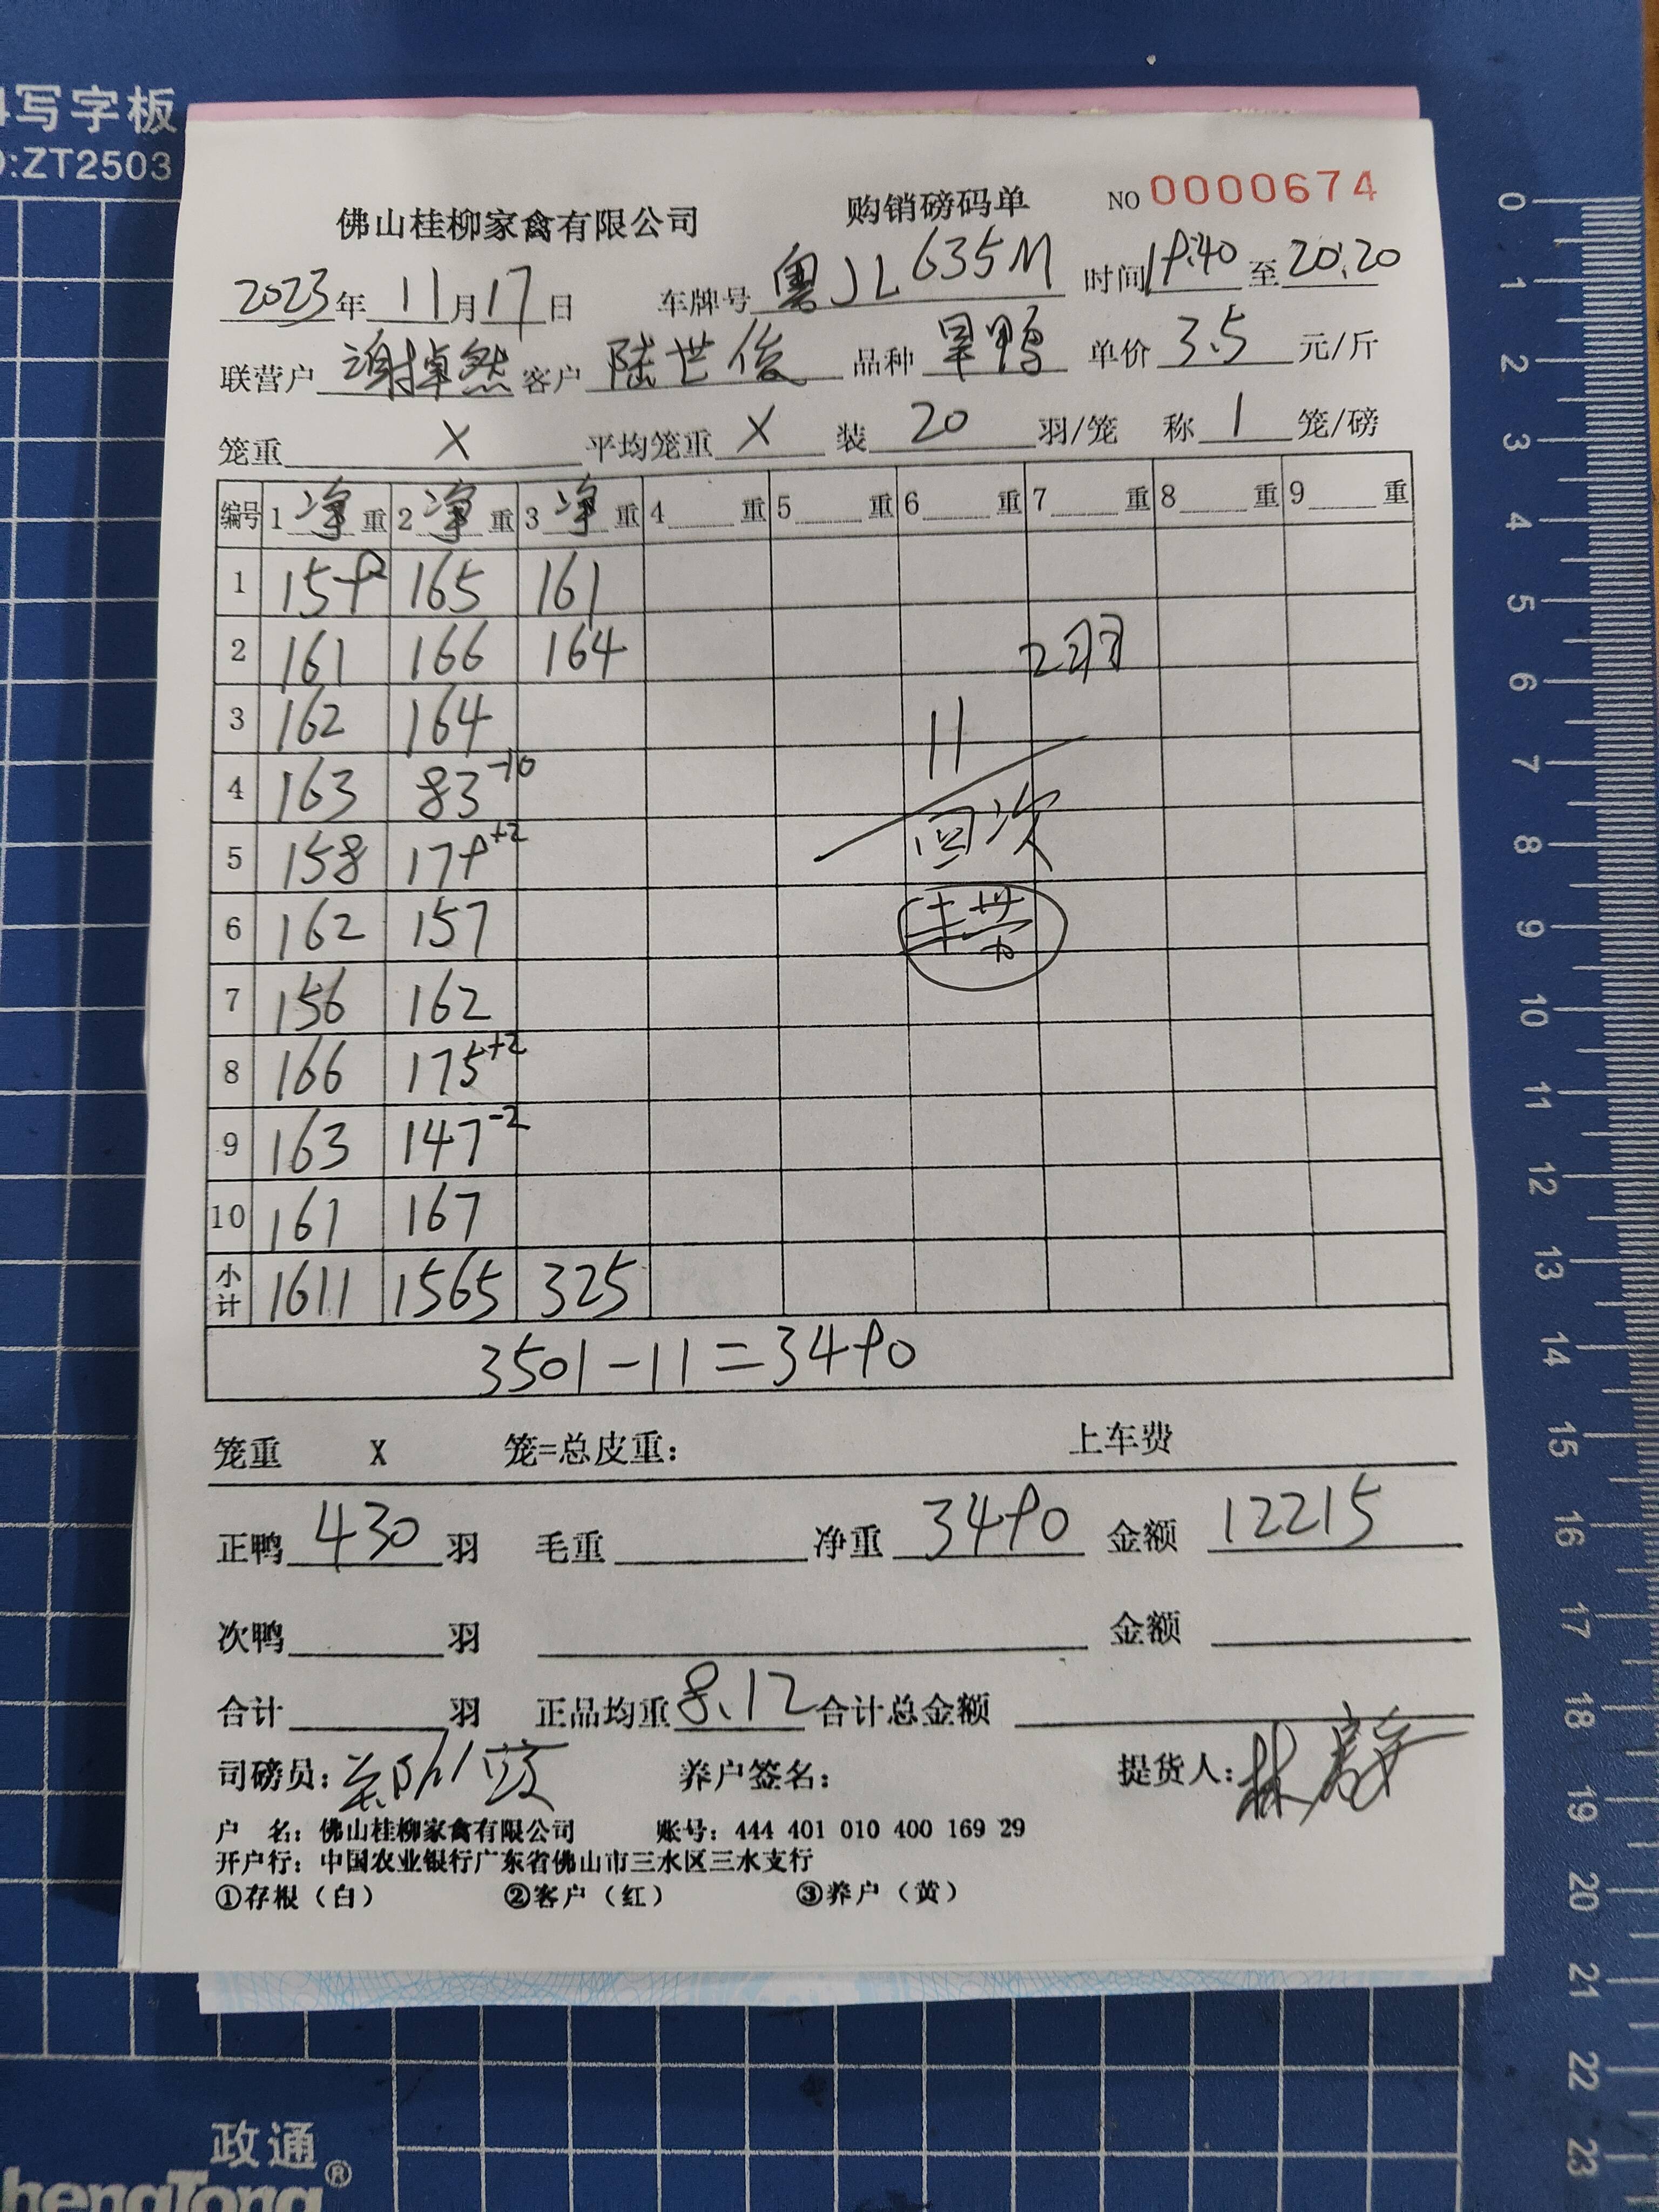 4写字板
O:ZT2503
佛山桂柳家禽有限公司 购销磅码单 NO 0000674
2023年 11月17日 车牌号 粤JL635M 时间19:40 至 20:20
联营户 谢掉然 客户 陆世俊 品种 旱鸭 单价 3.5 元/斤
笼重 X 平均笼重 X 装 20 羽/笼 称 1 笼/磅
编号 1 净 重 2 净 重 3 净 重 4 重 5 重 6 重 7 重 8 重 9 重
1 159 165 161
2 161 166 164 2羽
3 162 164 11
4 163 83-10 回次
5 158 179+2
6 162 157
7 156 162
8 166 175+2
9 163 147-2
10 161 167
小计 1611 1565 325
3501-11=3490
笼重 X 笼=总皮重: 上车费
正鸭 430 羽 毛重 净重 3490 金额 12215
次鸭 羽 金额
合计 羽 正品均重 8.12 合计总金额
司磅员: 养户签名: 提货人:
户 名: 佛山桂柳家禽有限公司 账号: 444 401 010 400 169 29
开户行: 中国农业银行广东省佛山市三水区三水支行
①存根（白） ②客户（红） ③养户（黄）
政通®
hengTong
0 1 2 3 4 5 6 7 8 9 10 11 12 13 14 15 16 17 18 19 20 21 22 23